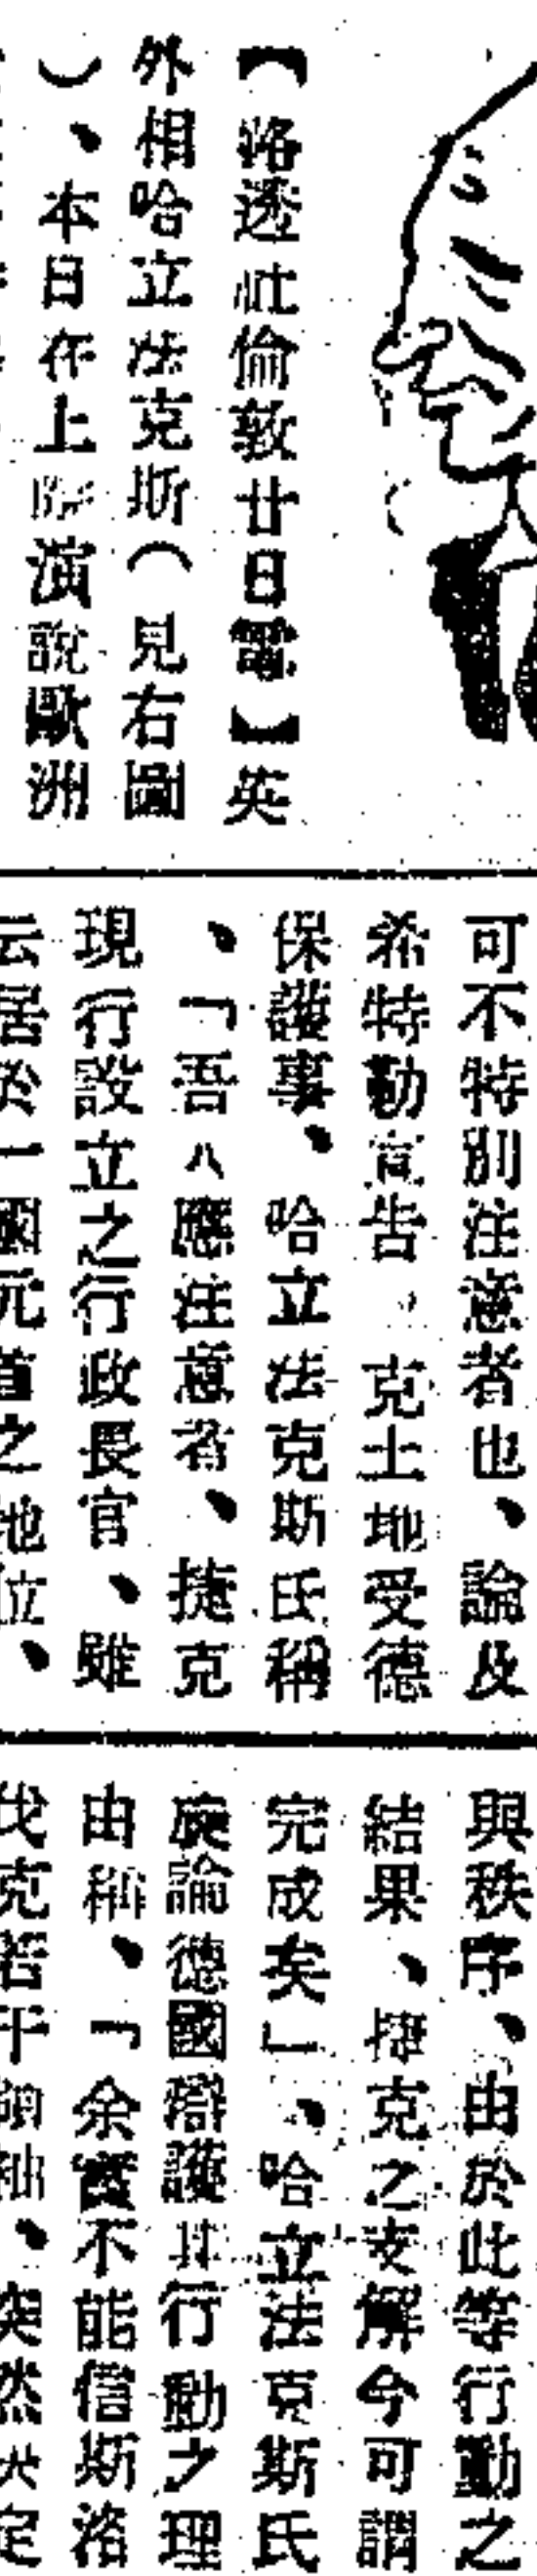 【路透社倫敦廿日電】英
外相哈立法克斯（見右圖
）、本日在上院演說歐洲
可不特別注意者也、論及
希特勒宣告　克土地受德
保護事、哈立法克斯氏稱
、「吾人應注意者、捷克
現行設立之行政長官、雖
云居於一國元首之地位、
與秩序、由於此等行動之
結果、捷克之支解今可謂
完成矣」、哈立法克斯氏
旋論德國辯護其行動之理
由稱、「余實不能信斯洛
伐克若干領袖、突然決定